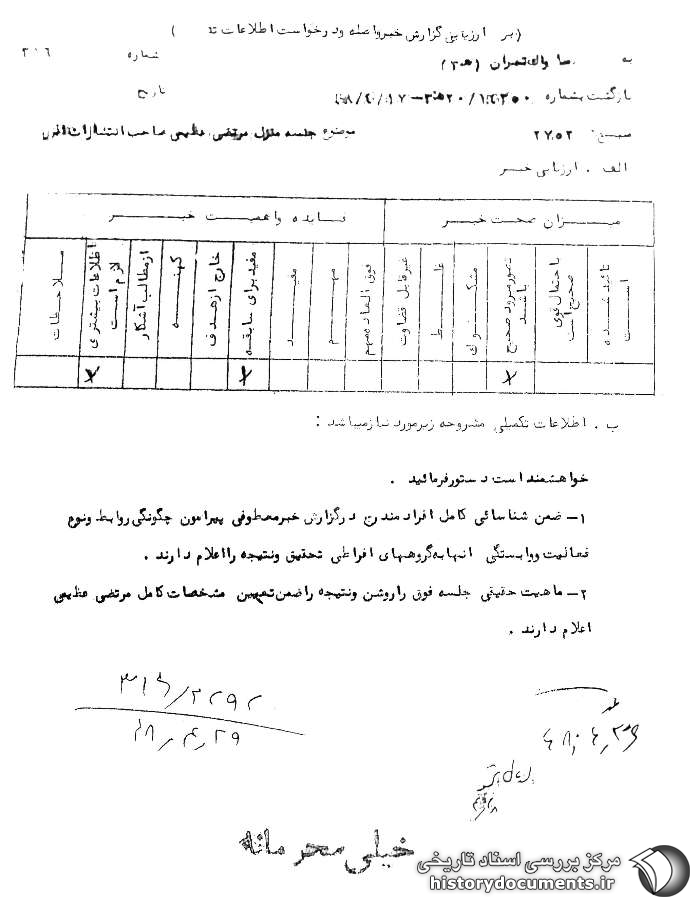 (بر ارزیابی گزارش خبر واصله و درخواست اطلاعات
به ساواک تهران (ه‍ ۳)
شماره ۳۱۶
بازگشت بشماره
تاریخ
۲۷۵۲
موضوع جلسه منزل مرتضی عظیمی صاحب انتشارات
الف . ارزیابی خبر
میزان صحت خبر
فایده و اهمیت خبر
تائید شده است
با احتمال قوی صحیح است
تصور میرود صحیح باشد
مشکوک
غلط
غیرقابل قضاوت
فوق العاده مهم
مهم
مفید
مفید برای سابقه
خارج از هدف
کهنه
از مطالب آشکار
اطلاعات بیشتری لازم است
ملاحظات
x
x
x
ب . اطلاعات تکمیلی مشروحه زیر مورد نیاز میباشد :
خواهشمند است دستور فرمائید .
۱ـ ضمن شناسائی کامل افراد مندرج در گزارش خبر معطوفی پیرامون چگونگی روابط و نوع
فعالیت و وابستگی آنها به گروههای افراطی تحقیق و نتیجه را اعلام دارند .
۲ـ ماهیت حقیقی جلسه فوق را روشن و نتیجه را ضمن تعیین مشخصات کامل مرتضی عظیمی
اعلام دارند .
۴۸٫۴٫۲۹
خیلی محرمانه
مرکز بررسی اسناد تاریخی
historydocuments.ir